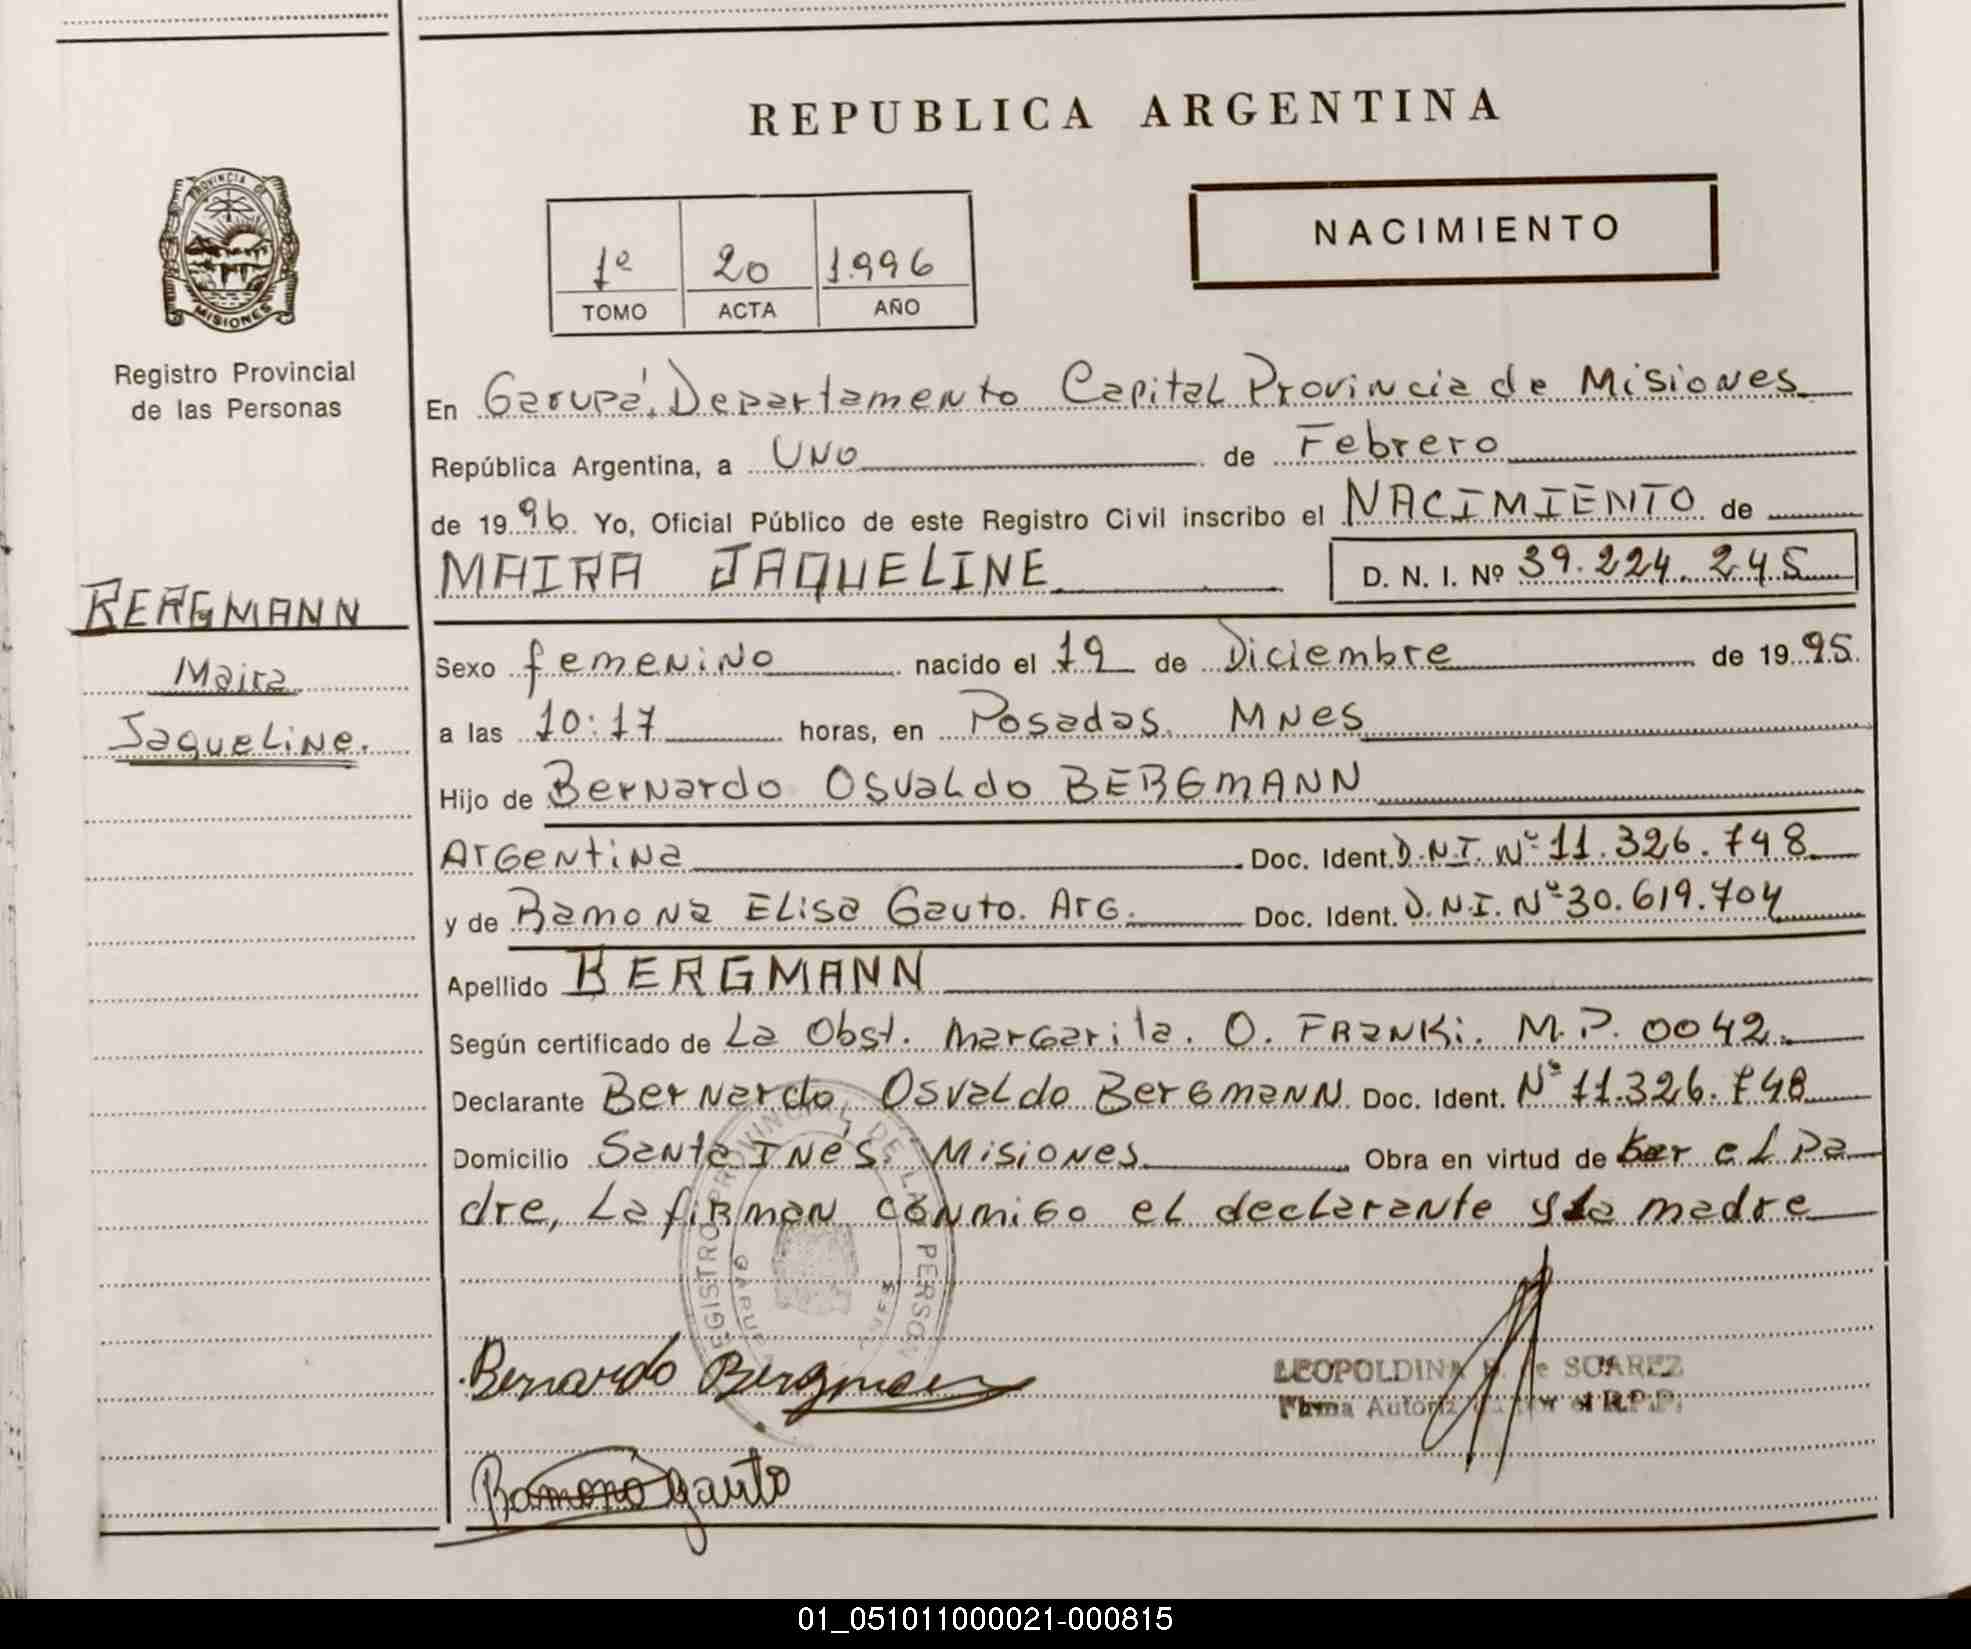 REPUBLICA ARGENTINA
NACIMIENTO
1º 20 1.996
TOMO ACTA AÑO
PROVINCIA DE
MISIONES
Registro Provincial
de las Personas
BERGMANN
Maira
Jaqueline.
En Garupá. Departamento Capital Provincia de Misiones
República Argentina, a Uno de Febrero
de 1996. Yo, Oficial Público de este Registro Civil inscribo el NACIMIENTO de
MAIRA JAQUELINE D. N. I. Nº 39.224.245
Sexo femenino nacido el 19 de Diciembre de 1995.
a las 10:17 horas, en Posadas. Mnes
Hijo de Bernardo Osvaldo BERGMANN
Argentina Doc. Ident. D.N.I. Nº 11.326.748
y de Ramona Elisa Gauto. Arg. Doc. Ident. D.N.I. Nº 30.619.704
Apellido BERGMANN
Según certificado de La Obst. Margarita. O. Franki. M.P. 0042.
Declarante Bernardo Osvaldo Bergmann Doc. Ident. Nº 11.326.748
Domicilio Santa Inés. Misiones Obra en virtud de Ser el Pa
dre, La firman conmigo el declarante y la madre
REGISTRO PROVINCIAL DE LAS PERSONAS
GARUPA
Bernardo Bergman
LEOPOLDINA de SUAREZ
Firma R.P.P.
Ramona Gauto
01_051011000021-000815